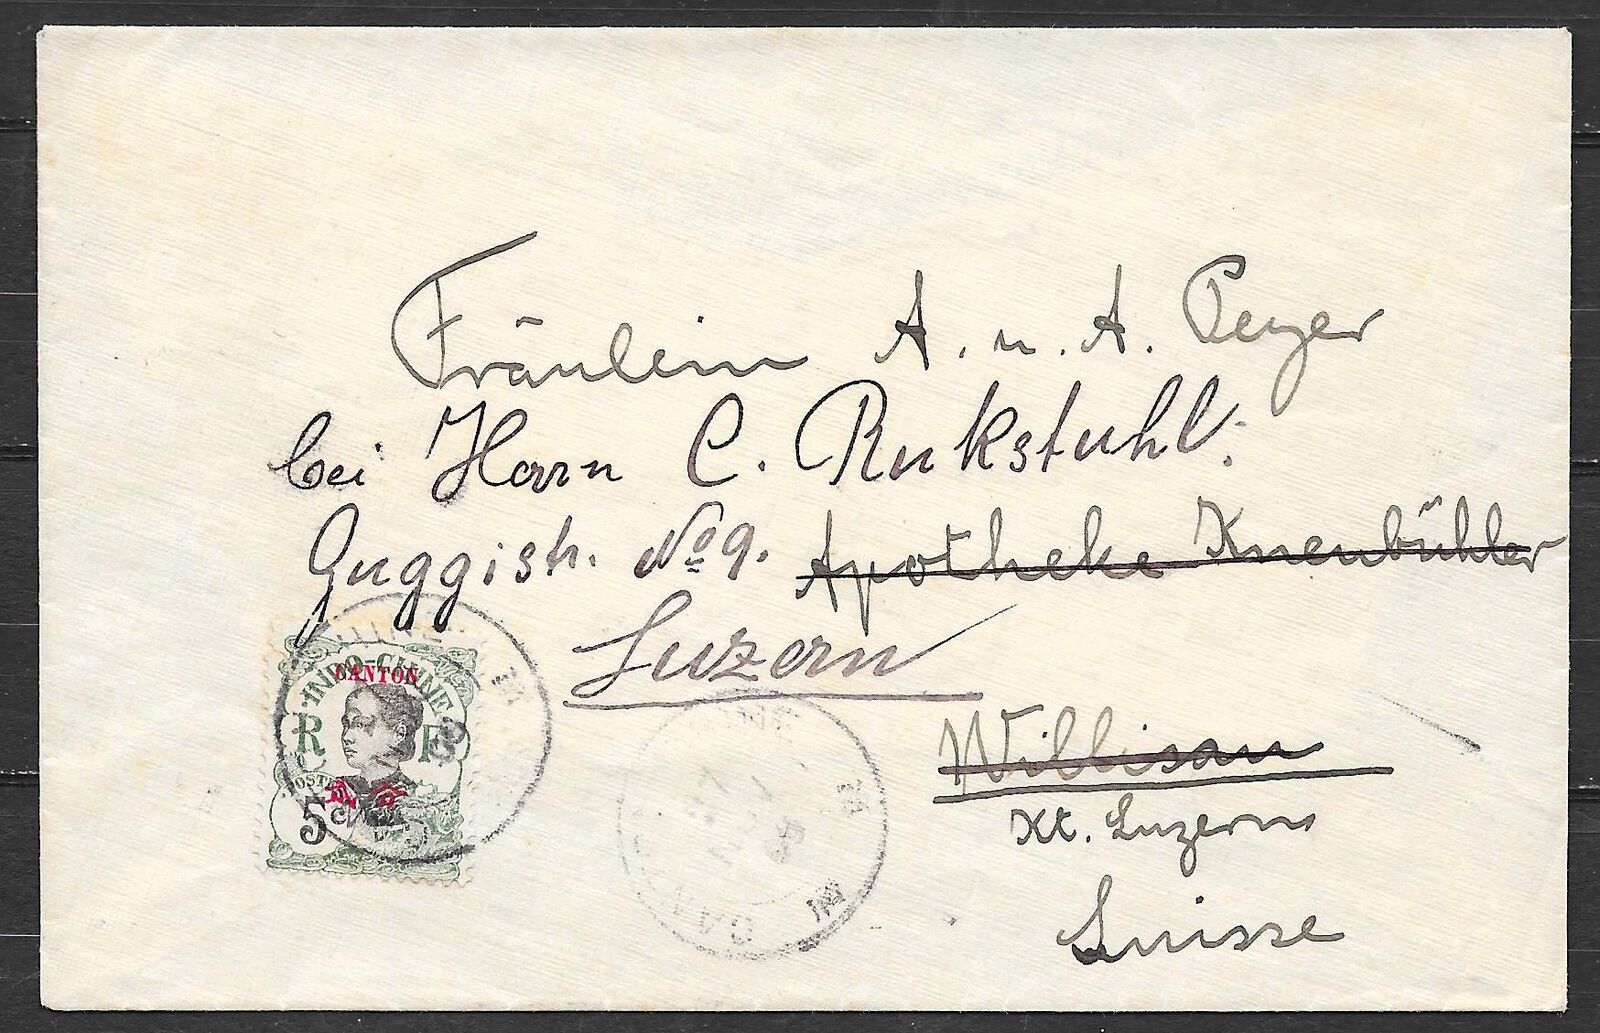 Fräulein A. u. A. Peyer
bei Herrn C. Ruckstuhl.
Guggistr. No 9. Apotheke Kneubühler
Luzern
Willisau
Kt. Luzern
Suisse
INDO-CHINE
CANTON
R F
POSTES
5
CANTON